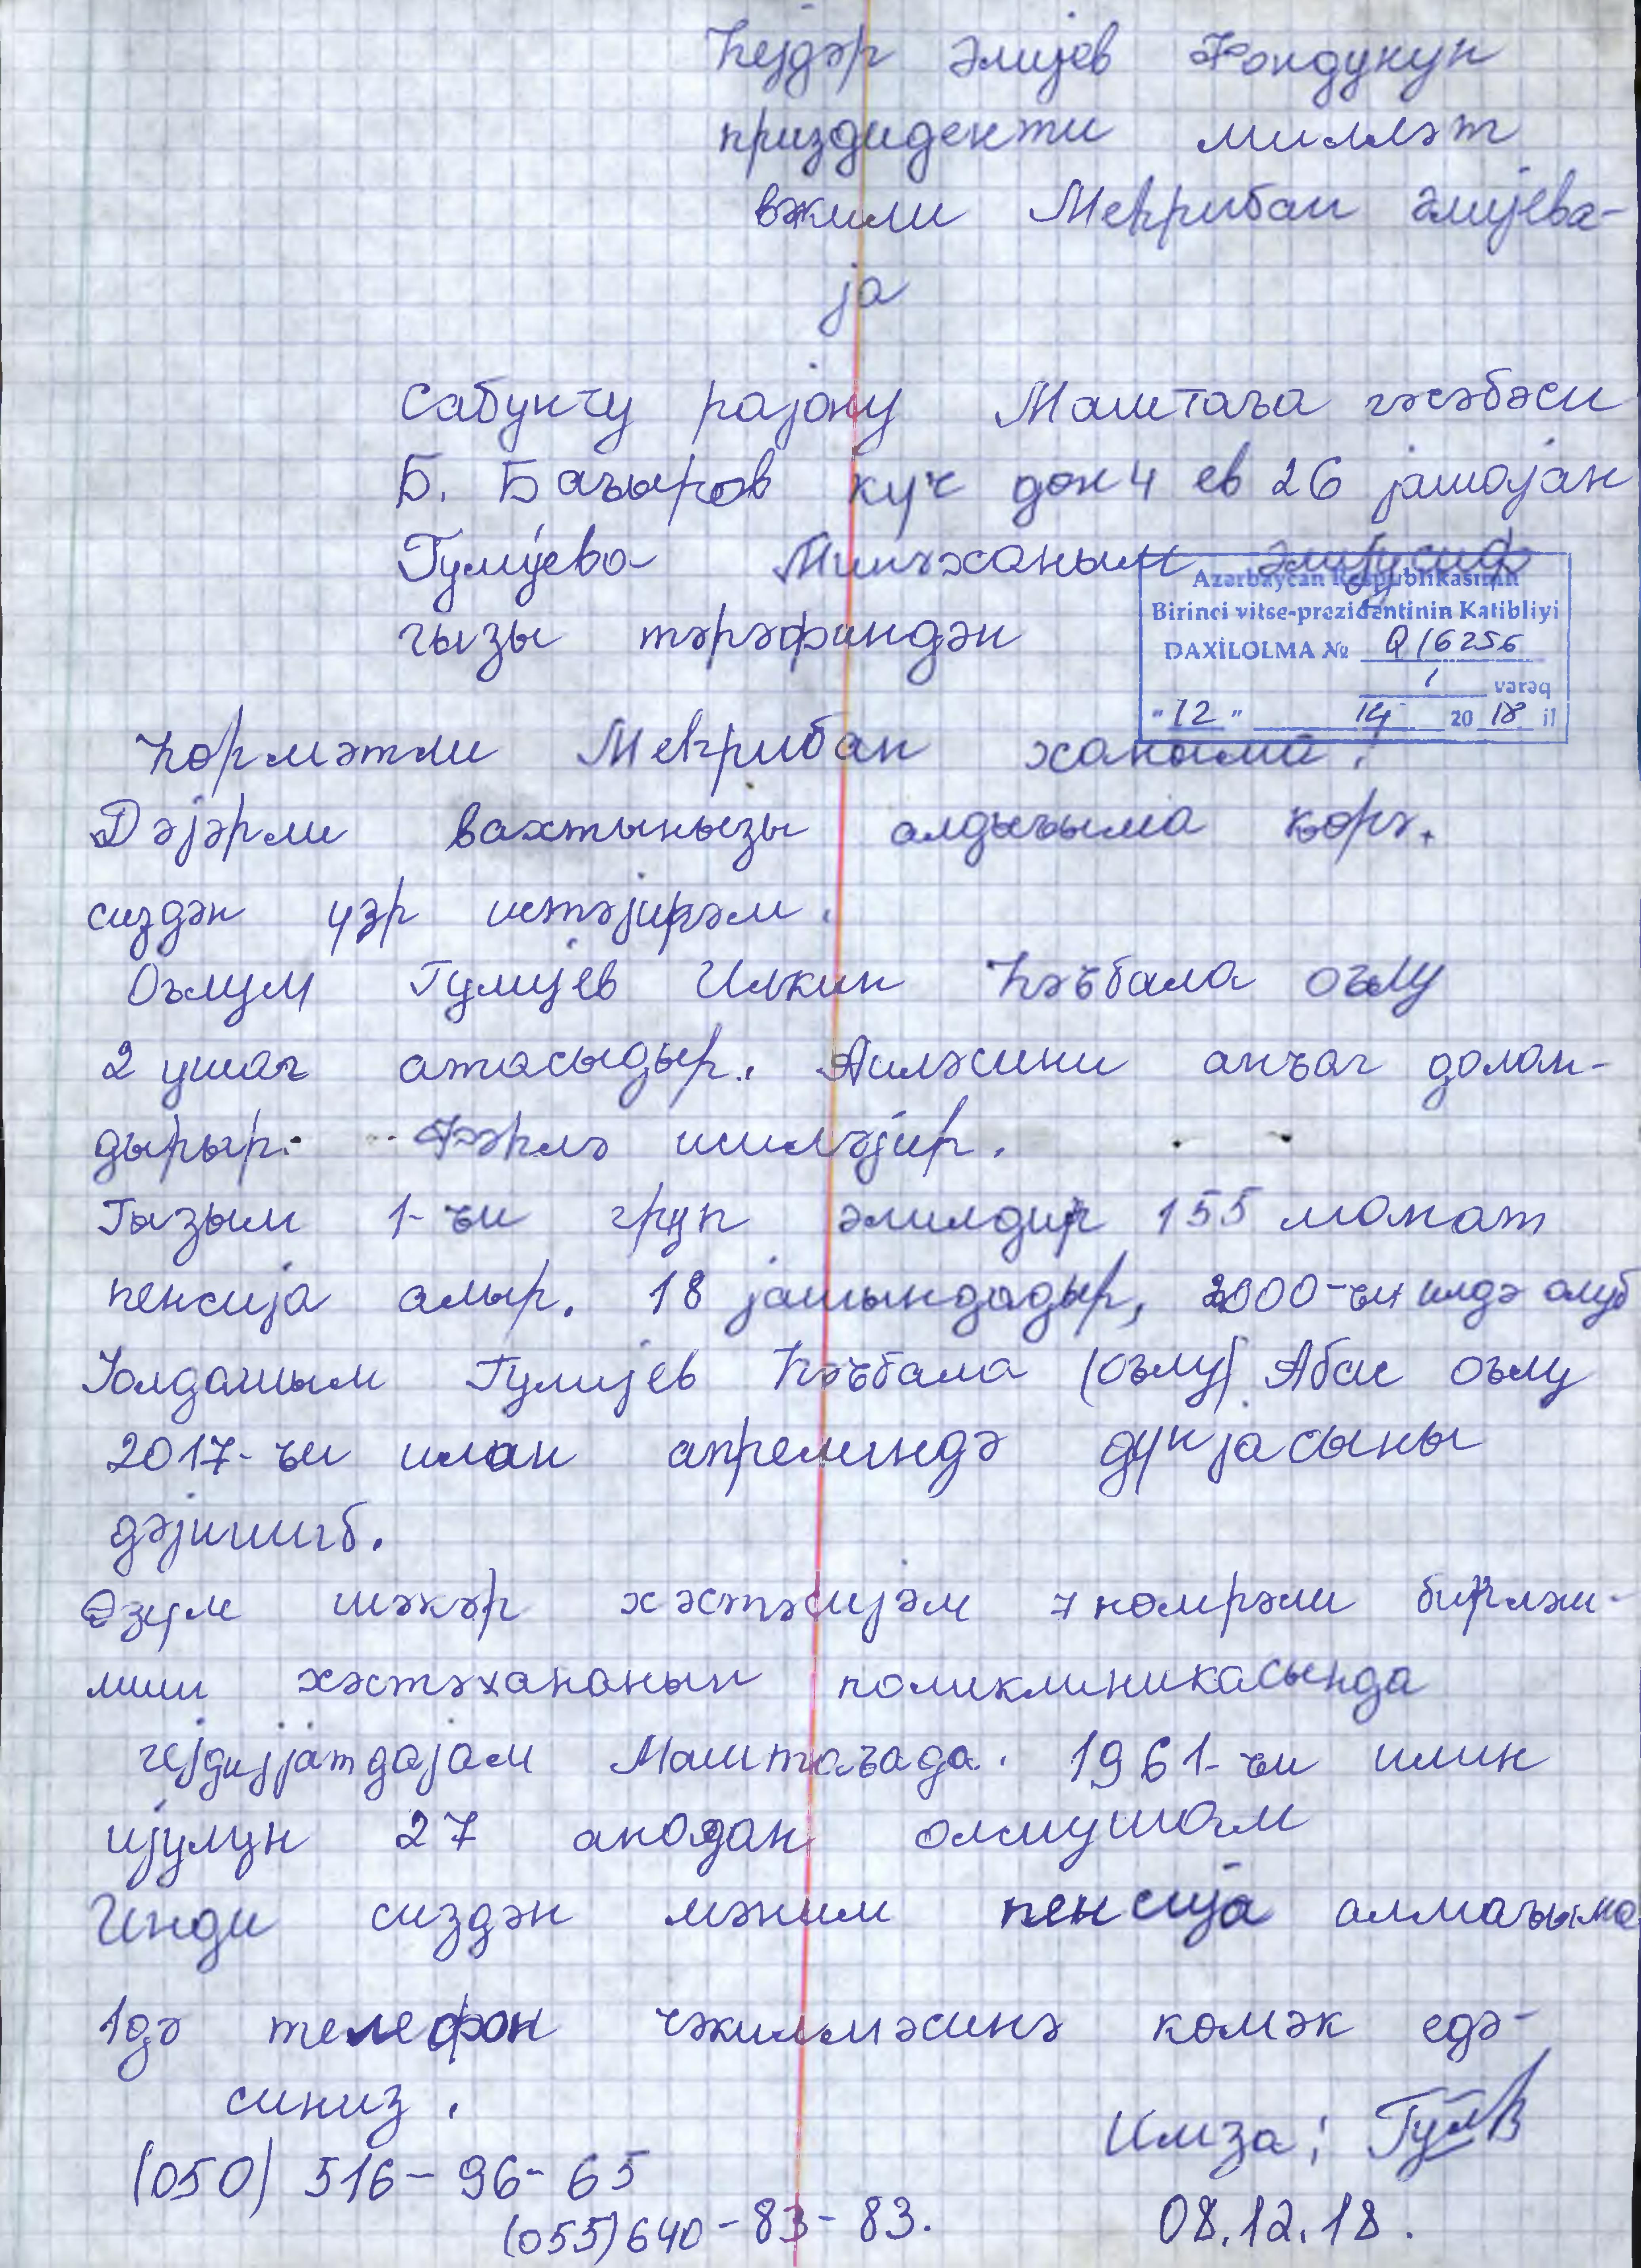 Һејдәр Әлијев Фондунун
приздиденти милләт
вәкили Меһрибан Әлијева-
ја
Сабунчу рајону Маштаға гәсәбәси
Б. Бағыров күч дön 4 ев 26 јашајан
Гулијева Минәханым Әлијусиф
гызы тәрәфиндән
Azərbaycan Respublikasının
Birinci vitse-prezidentinin Katibliyi
DAXİLOLMA № Q/6256
1 vərəq
"12" 14 2018 il
Һөрмәтли Меһрибан ханым!
Дәјәрли вахтынызы алдығыма ҝөрә.
сиздән үзр истәјирәм.
Оғлум Гулијев Илкин Һәҹбала оғлу
2 ушаг атасыдыр. Аиләсини анҹаг долан-
дырыр. Фәһлә ишләјир.
Гызым 1-ҹи груп әлилдир 155 манат
пенсија алыр. 18 јашындадыр, 2000-ҹи илдә олуб
Јолдашым Гулијев Һәҹбала (оғлу) Абас оғлу
2017-ҹи илин апрелиндә дүнјасыны
дәјишиб.
Өзүм шәкәр хәстәсијәм 7 нөмрәли бирләш-
миш хәстәхананын поликлиникасында
гејдијјатдајам Маштағада. 1961-ҹи илин
ијулун 27 анадан олмушам
Инди сиздән мәним пенсија алмағыма
1дә телефон чәкилмәсинә көмәк едә-
синиз.
Имза: Гулв
(050) 516-96-65
(055) 640-83-83.
08.12.18.